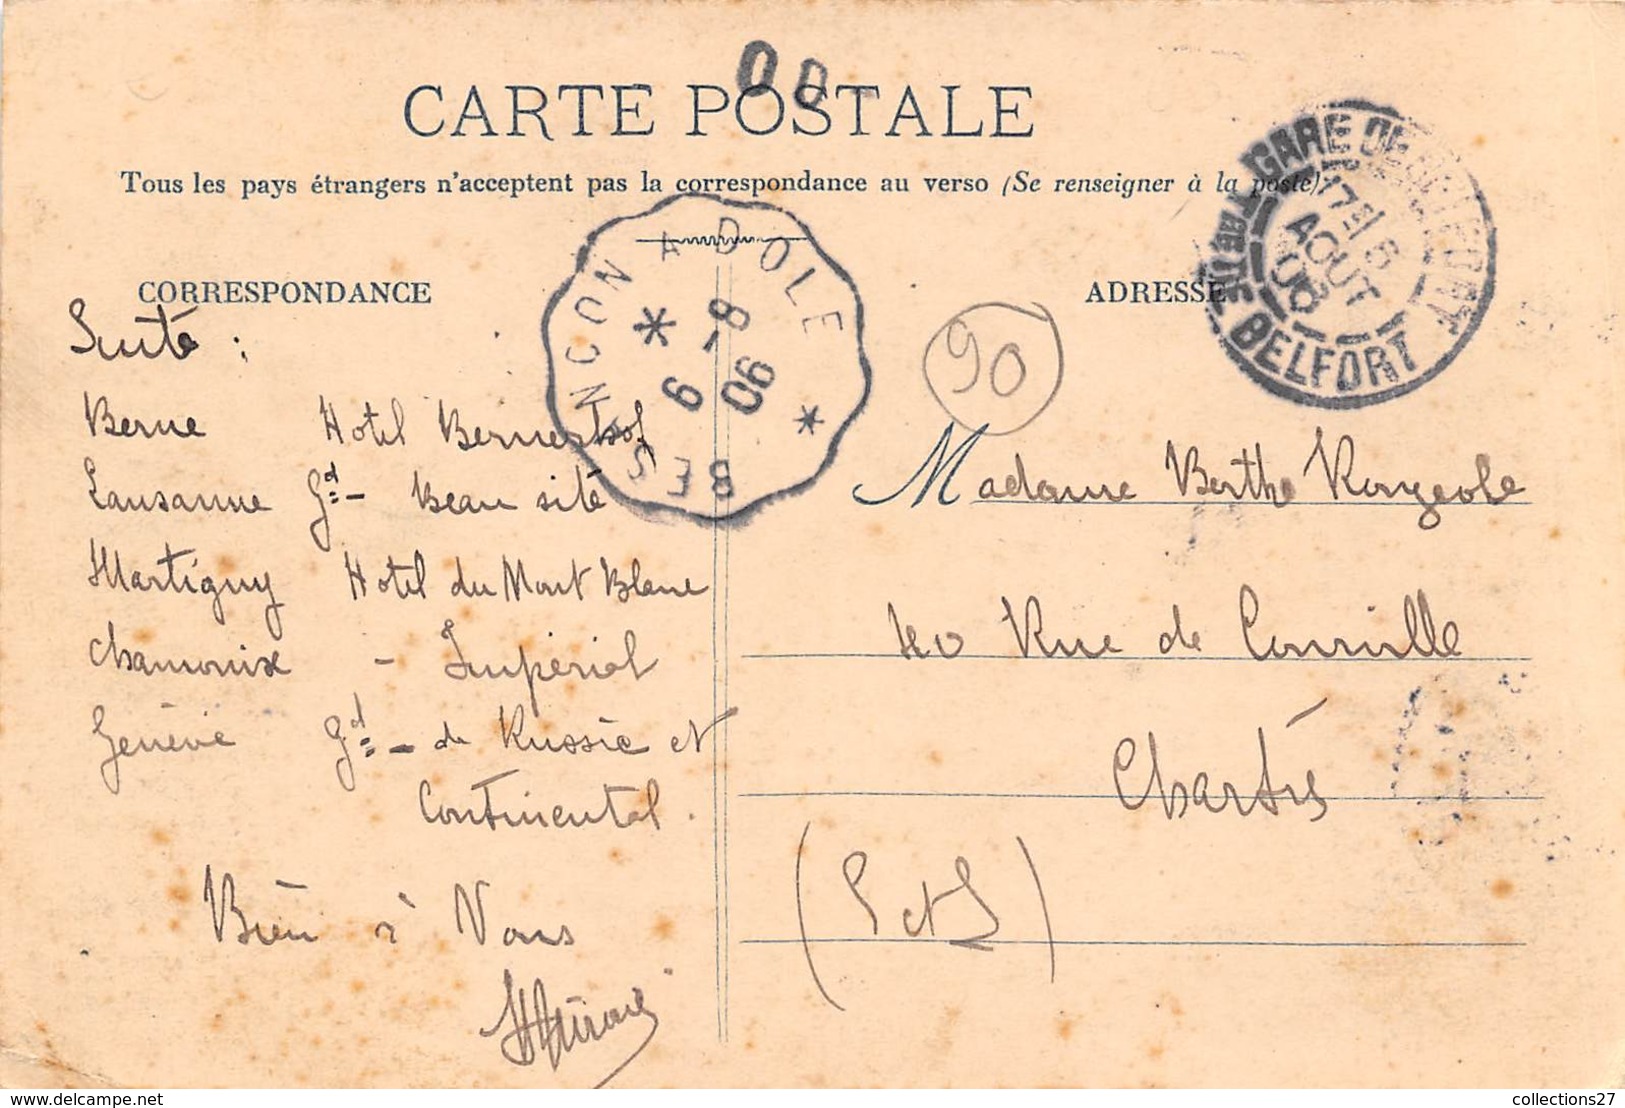 CARTE POSTALE
Tous les pays étrangers n'acceptent pas la correspondance au verso (Se renseigner à la poste)
CORRESPONDANCE
ADRESSE
GARE DE BELFORT
BELFORT
17 6
AOUT
06
BESANCON A DOLE
6 - 8
06
90
Suite :
Berne Hotel Bernerhof
Lausanne Gd - Beau site
Martigny Hotel du Mont Blanc
Chamonix - Impérial
Genève Gd - de Russie et
Continental.
Bien à Vous
Madame Berthe Rougeole
40 Rue de Courville
Chartres
(E et L)
www.delcampe.net
collections27